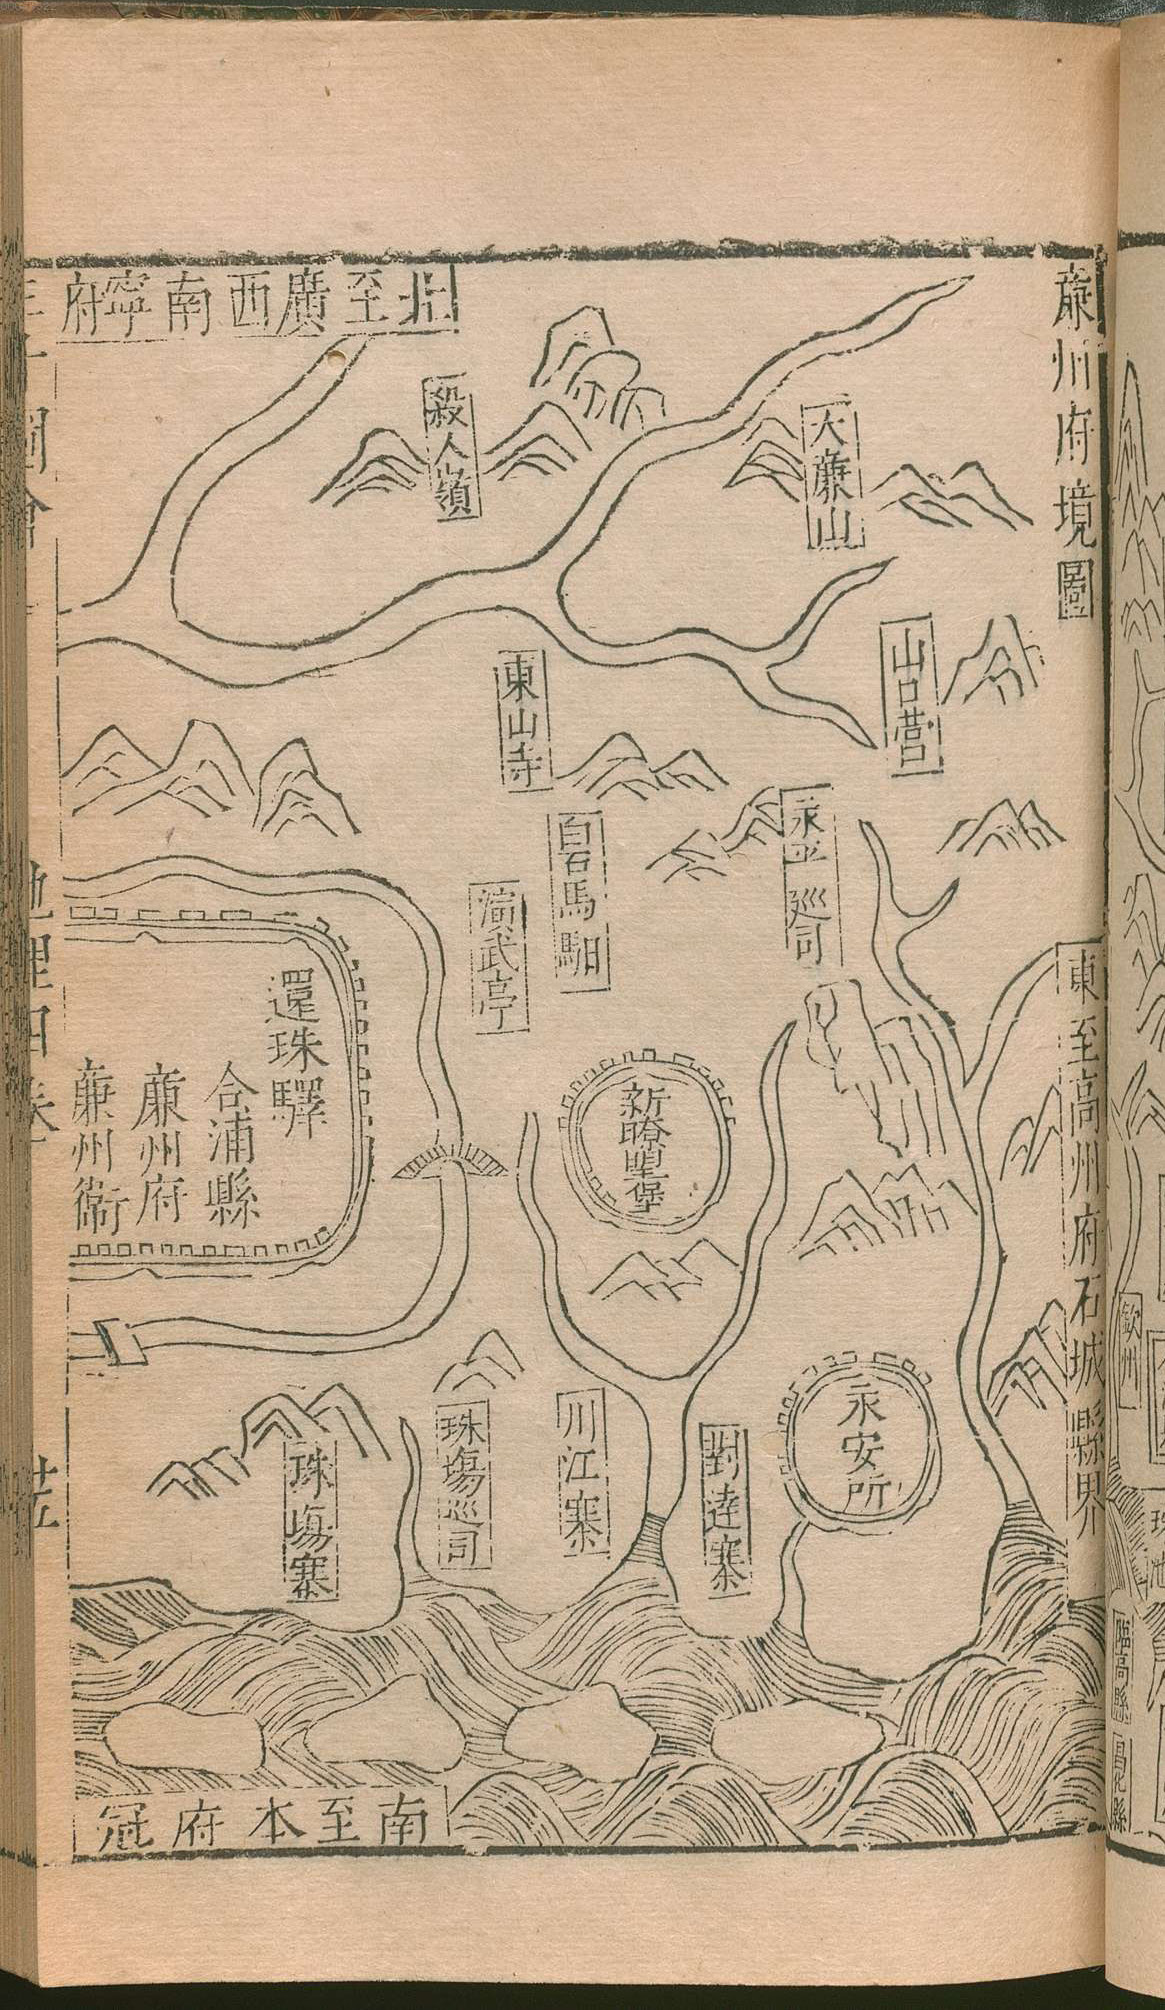 廉州府境圖
北至廣西南寧府
殺人嶺
大廉山
山口營
東山寺
永平廵司
白石馬駔
演武亭
東至高州府石城縣界
還珠驛
合浦縣
廉州府
廉州衛
新瞭望堡
永安所
對逹寨
川江寨
珠塲巡司
珠塲寨
南至本府冠
地理四卷
欽州
珠池
臨高縣
昌化縣